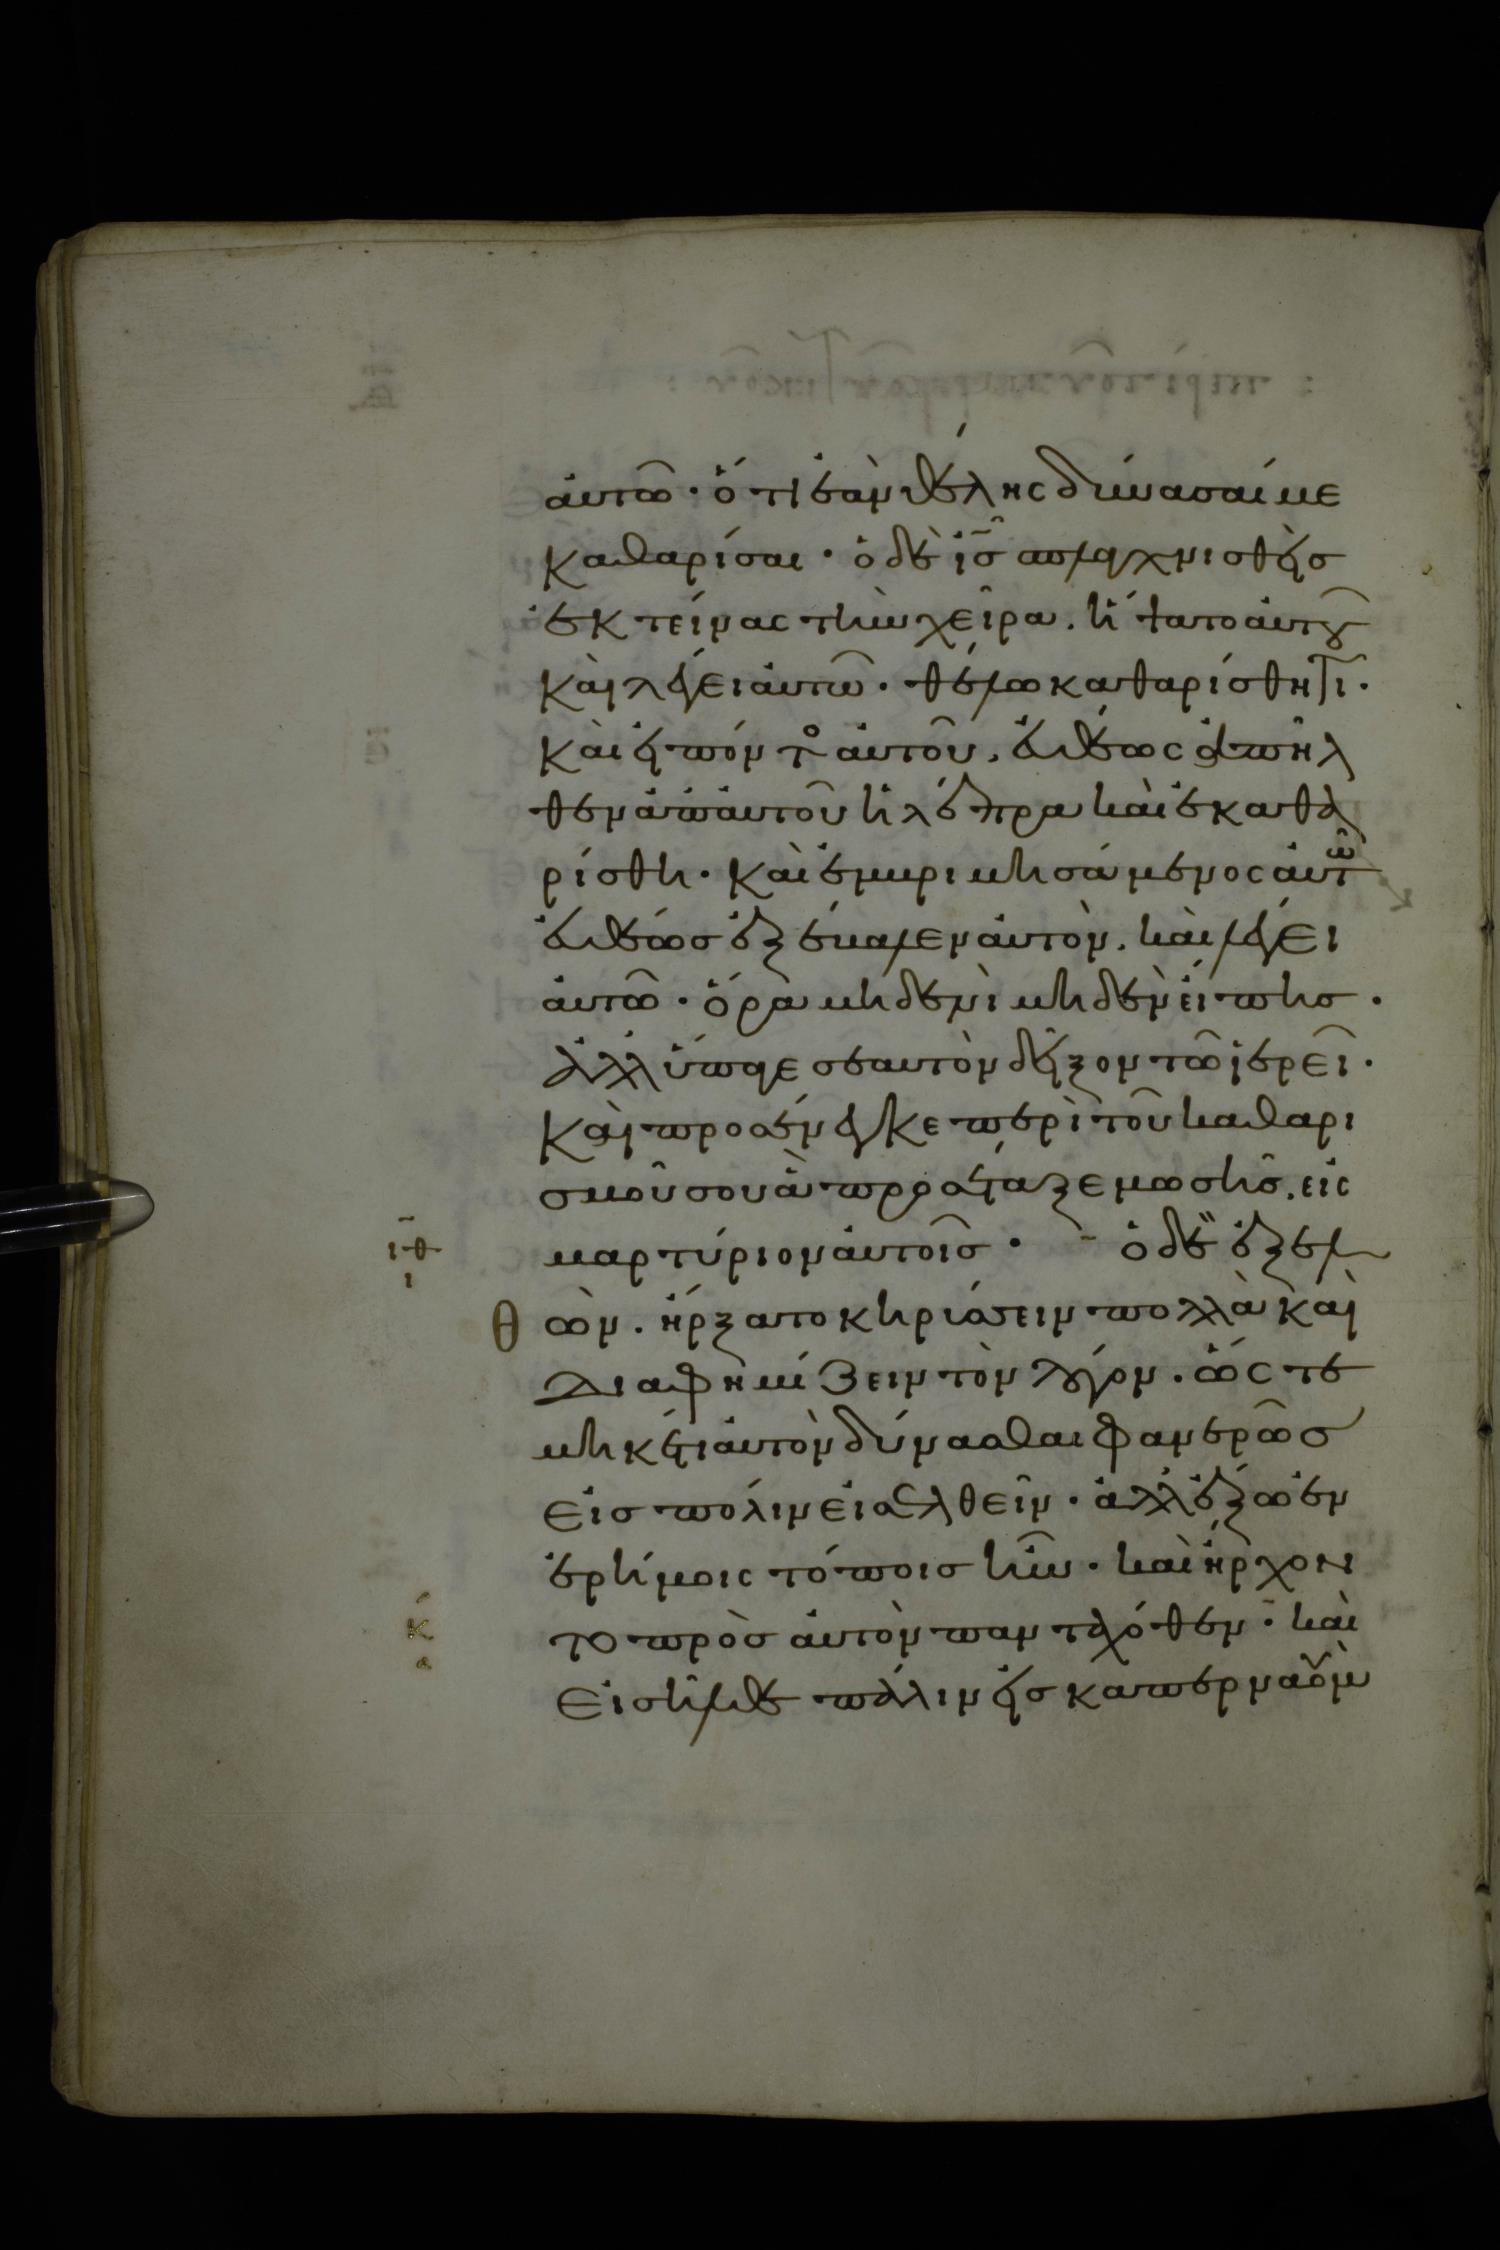 αὐτῶ · ὅτι ἐὰν θέλης δύνασαί με
καθαρίσαι · ὁ δὲ ἰ̅σ̅ σπλαγχνισθεὶς
ἐκτείνας τὴν χεῖρα . ἥψατο αὐτοῦ
καὶ λέγει αὐτῶ · θέλω καθαρίσθητι ·
καὶ εἰπόντο αὐτοῦ , εὐθέως ἀπῆλ
θεν ἀπ᾽ αὐτοῦ ἡ λέπρα καὶ ἐκαθα
ρίσθη · καὶ ἐμβριμησάμενος αὐτῶ
εὐθέως ἐξέβαλεν αὐτὸν . καὶ λέγει
αὐτῶ · ὅρα μηδενὶ μηδὲν εἴπης ·
ἀλλ᾽ ὕπαγε σεαυτὸν δεῖξον τῶ ἱερεῖ ·
καὶ προσένεγκε περὶ τοῦ καθαρι
σμοῦ σου ἃ προσέταξε μωσῆς . εἰς
μαρτύριον αὐτοῖς · ὁ δὲ ἐξελ
θὼν . ἤρξατο κηρύσσειν πολλὰ καὶ
διαφημίζειν τὸν λόγον . ὥστε
μηκέτι αὐτὸν δύνασθαι φανερῶς
εἰς πόλιν εἰσελθεῖν · ἀλλ᾽ ἔξω ἐν
ἐρήμοις τόποις ἦν · καὶ ἤρχον
το πρὸς αὐτὸν πανταχόθεν · καὶ
εἰσῆλθε πάλιν εἰς καπερναοὺμ
ιθ
ι
κ
α